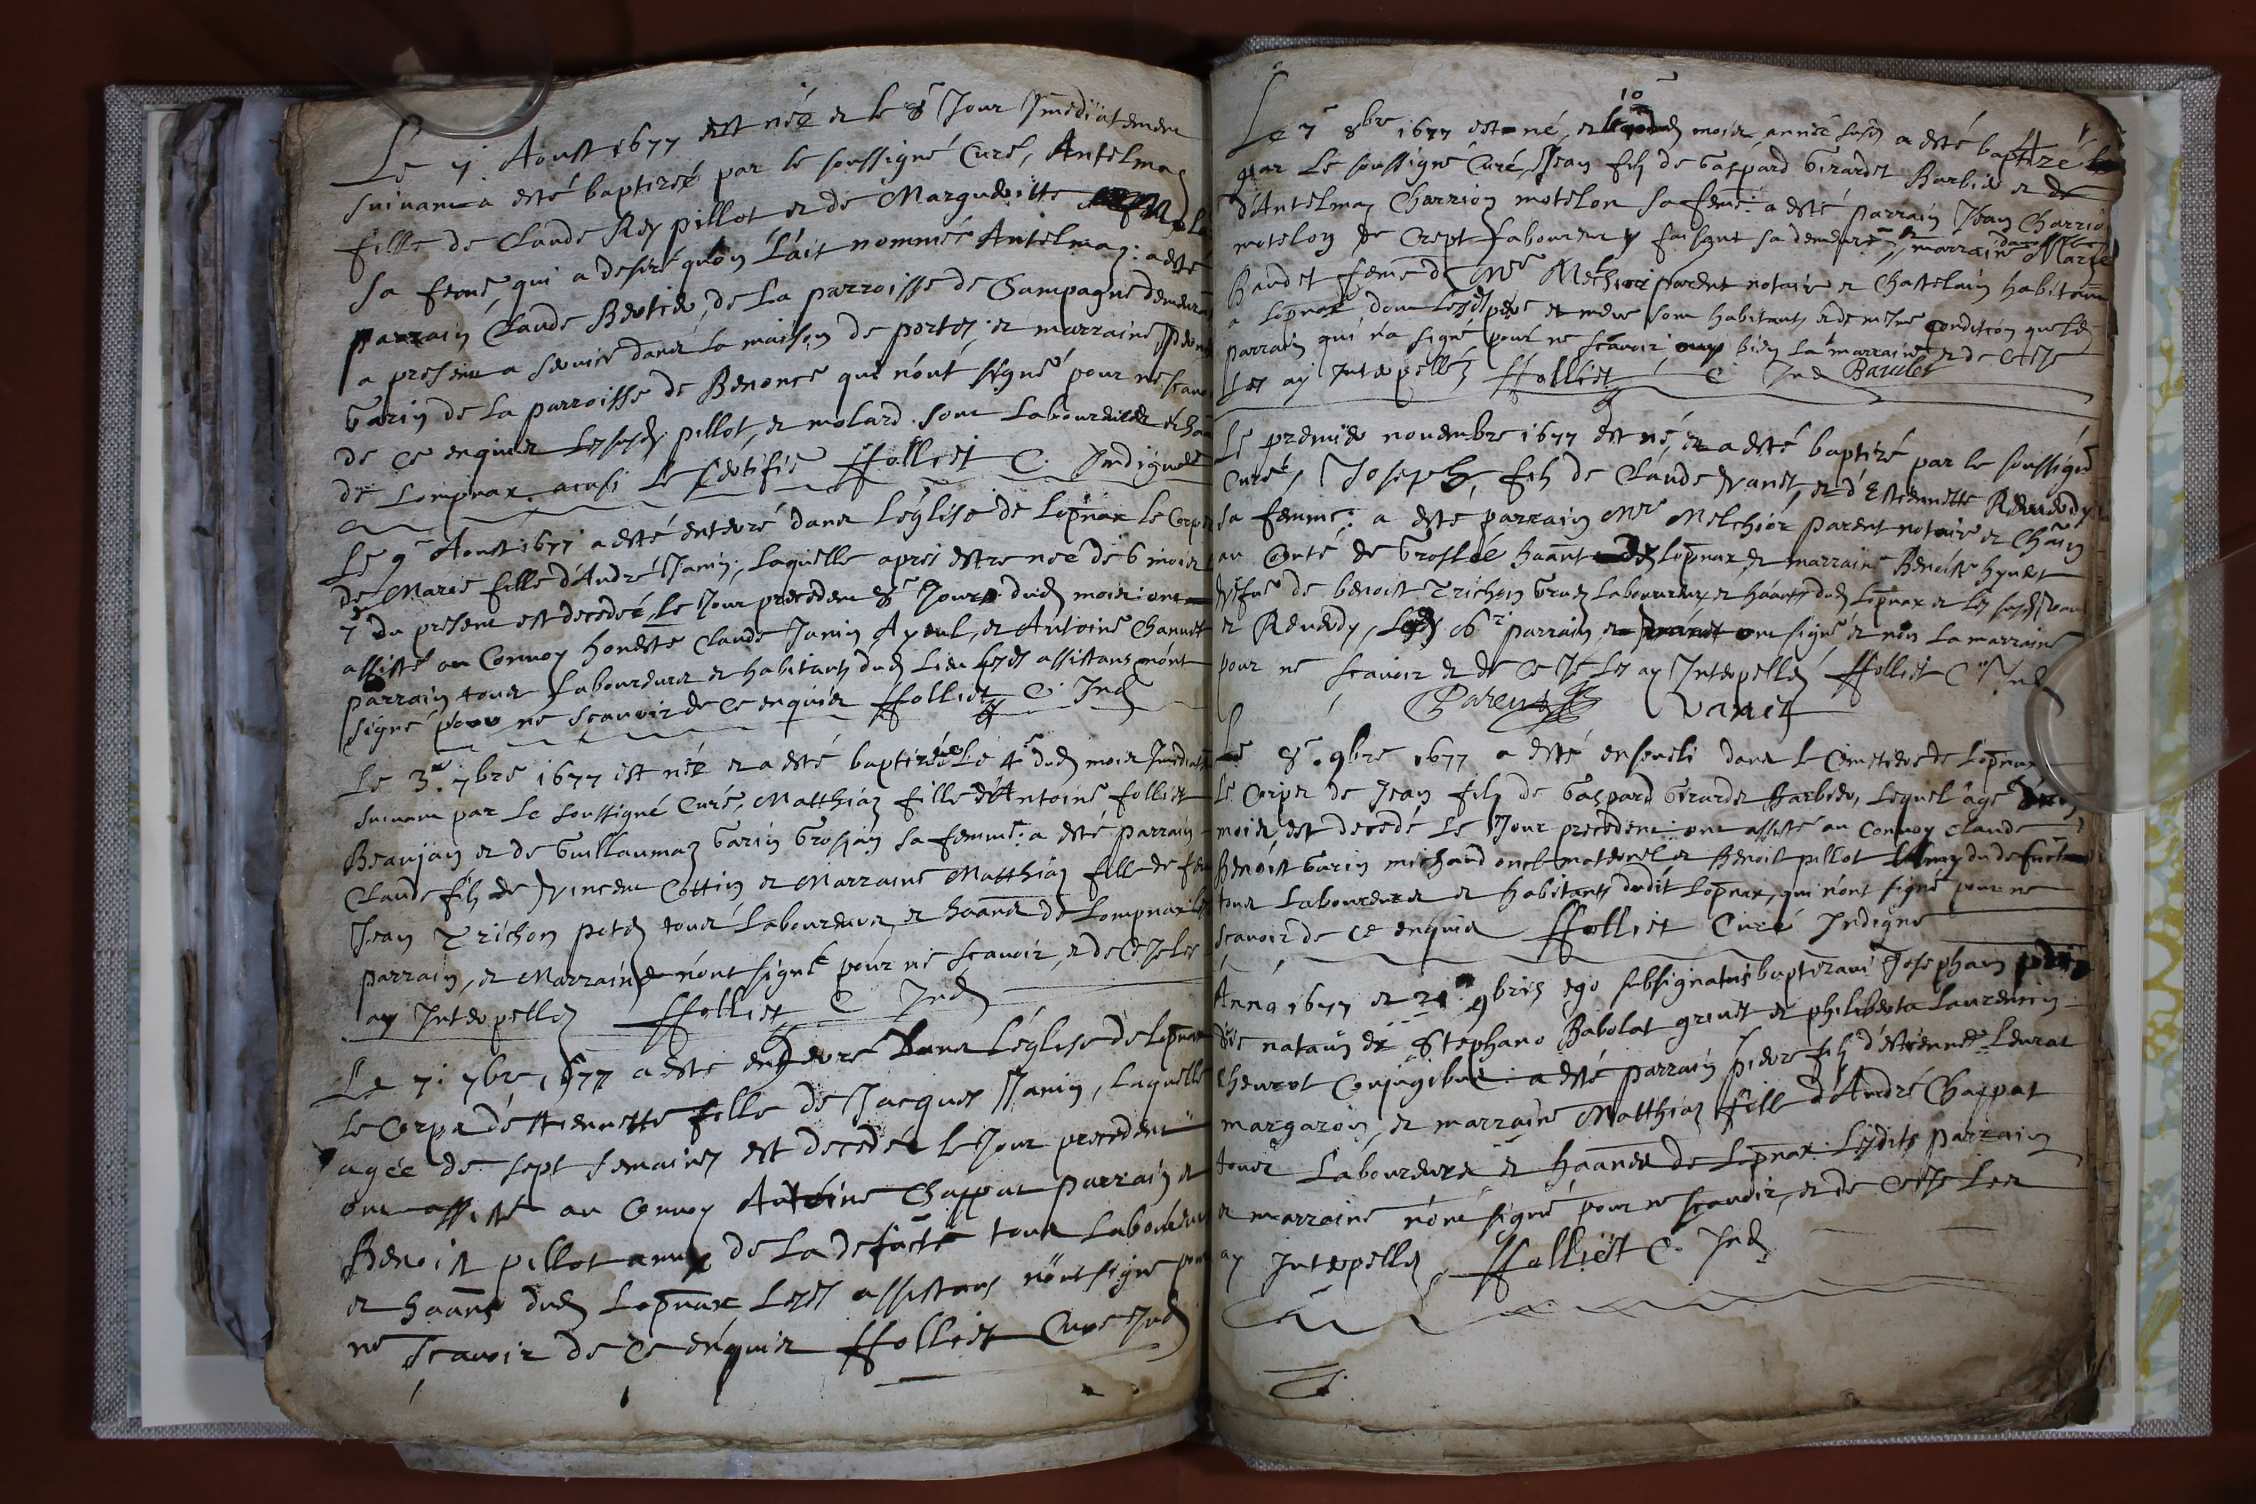 Le 7. Aoust 1677 est née et le 8e Jour Jmediatement
suivant a esté baptizée par le soussigné Curé, Antelmaz
fille de Claude Rey pillot et de Margueritte
sa feme, qui a desiré quón L'ait nommée Antelmaz: a esté
parrain Claude Bertier, de La parroisse de Champagne demeurā
a present a servir dans la maison de portes, et marraine
Garin de La parroisse de Benonce qui n'ont signé pour ne scavoir
de ce enquis Lesusds pillot, et molard sont Laboureurs et hāā
de Lompnax ainsi Le Certifie ffolliet C. Indigne
Le 9e Aoust 1677 a esté enterré dans L'église de Lopnax Le Corps
de Marie fille d'André Janin, Laquelle apres estre née de 6 mois
7e du present est decedée Le Jour precedent 8e Jour dud mois: ont
assisté au Convoy honeste Claude Janin Ayeul, et Antoine Chanvet
parrain tous Laboureurs et habitants dud Lieu Lesds assistans n'ont
signé pour ne scavoir de ce enquis ffolliet C. Ind
Le 3e 7bre 1677 est née et a esté baptizée Le 4e dud mois Jmediat
suivant par Le soussigné Curé, Matthiaz fille d'Antoine folliet
Beaujan et de Guillaumaz Garin Grosjan sa femme: a esté parrain
Claude fils de Vincent Cottin et Marraine Matthiaz fille de feu
Jean Trichon petet tous Laboureurs et haāns de Lompnax: Les
parrain, et Marraine n'ont signé pour ne scavoir, et de ce Je les
ay Interpellez ffolliet C Ind
Le 7: 7bre 1677 a esté enterré dans L'église de Lopnax
le Corps d'éttiennette fille de Jacques Janin, Laquelle
agée de sept semaines est decedée le Jour precedent
ont assisté au Convoy Antoine Chappat parrain et
Benoist pillot amy de La defūcte tous Laboureurs
et haāns dud Lopnax Lesds assistans n'ont signé pour
ne scavoir de ce enquis ffolliet Curé Ind
10
Le 7e 8bre 1677 est né, et mois, année susd a esté baptizé
par Le soussigné Curé, Jean fils de Gaspard Girardet Barbier et de
d'Antelmaz Charrion motelon sa feme: a esté parrain Jean Charrion
motelon de Crept Laboureur y faisant sa demeure, et marraine dam Marie
Baudet feme de Mre Melchior parent notaire et Chastelain habitant
a Lopnax, dont Lesds pere et mere sont habitants et de mesme condition que Led
parrain qui n'a signé pour ne scavoir, ouy bien La marraine et de ce Je
Les ay Interpellez ffolliet C Ind Baudet
Le premier novembre 1677 est né, et a esté baptizé par le soussigné
Curé, Joseph, fils de Claude Vanet, et d'Estiennette Reverdy
sa femme: a esté parrain Mre Melchior parent notaire et Chāin
au Comté de Groslée haānt Lopnax et marraine Benoiste hyvert
vefue de benoist Trichon Grus Laboureurs et haānts dud Lopnax et Les susds vanet
et Reverdy, Lesds sr parrain et ont signé et non La marraine
pour ne scavoir et de ce Je Les ay Interpellez ffolliet C Ind
Parent Vanet
Le 8e 9bre 1677 a esté enseveli dans le Cimetiere de Lopnax
Le Corps de Jean fils de Gaspard Girardet Barbier, Lequel agé d'un
mois, est decedé Le Jour precedent: ont assisté au Convoy Claude
Benoist Garin michaud oncle maternel et Benoist pillot amy du defūct
tous Laboureurs et habitants dudit Lopnax, qui n'ont signé pour ne
scavoir de ce enquis ffolliet Curé Indigne
Anno 1677 et 21 9bris ego subsignatus baptizavi Josepham
die natam ex Stephano Babolat grinet et philiberta Laurencin
Chevrot Conjugibus: a esté parrain pierre fils d'estienne Leurat
margaron, et marraine Matthiaz fille d'André Chappat
tous Laboureurs et haānts de Lopnax: Lesdits parrain
et marraine n'ont signé pour ne scavoir, et de ce Je Les
ay Interpellez ffolliet C. Ind